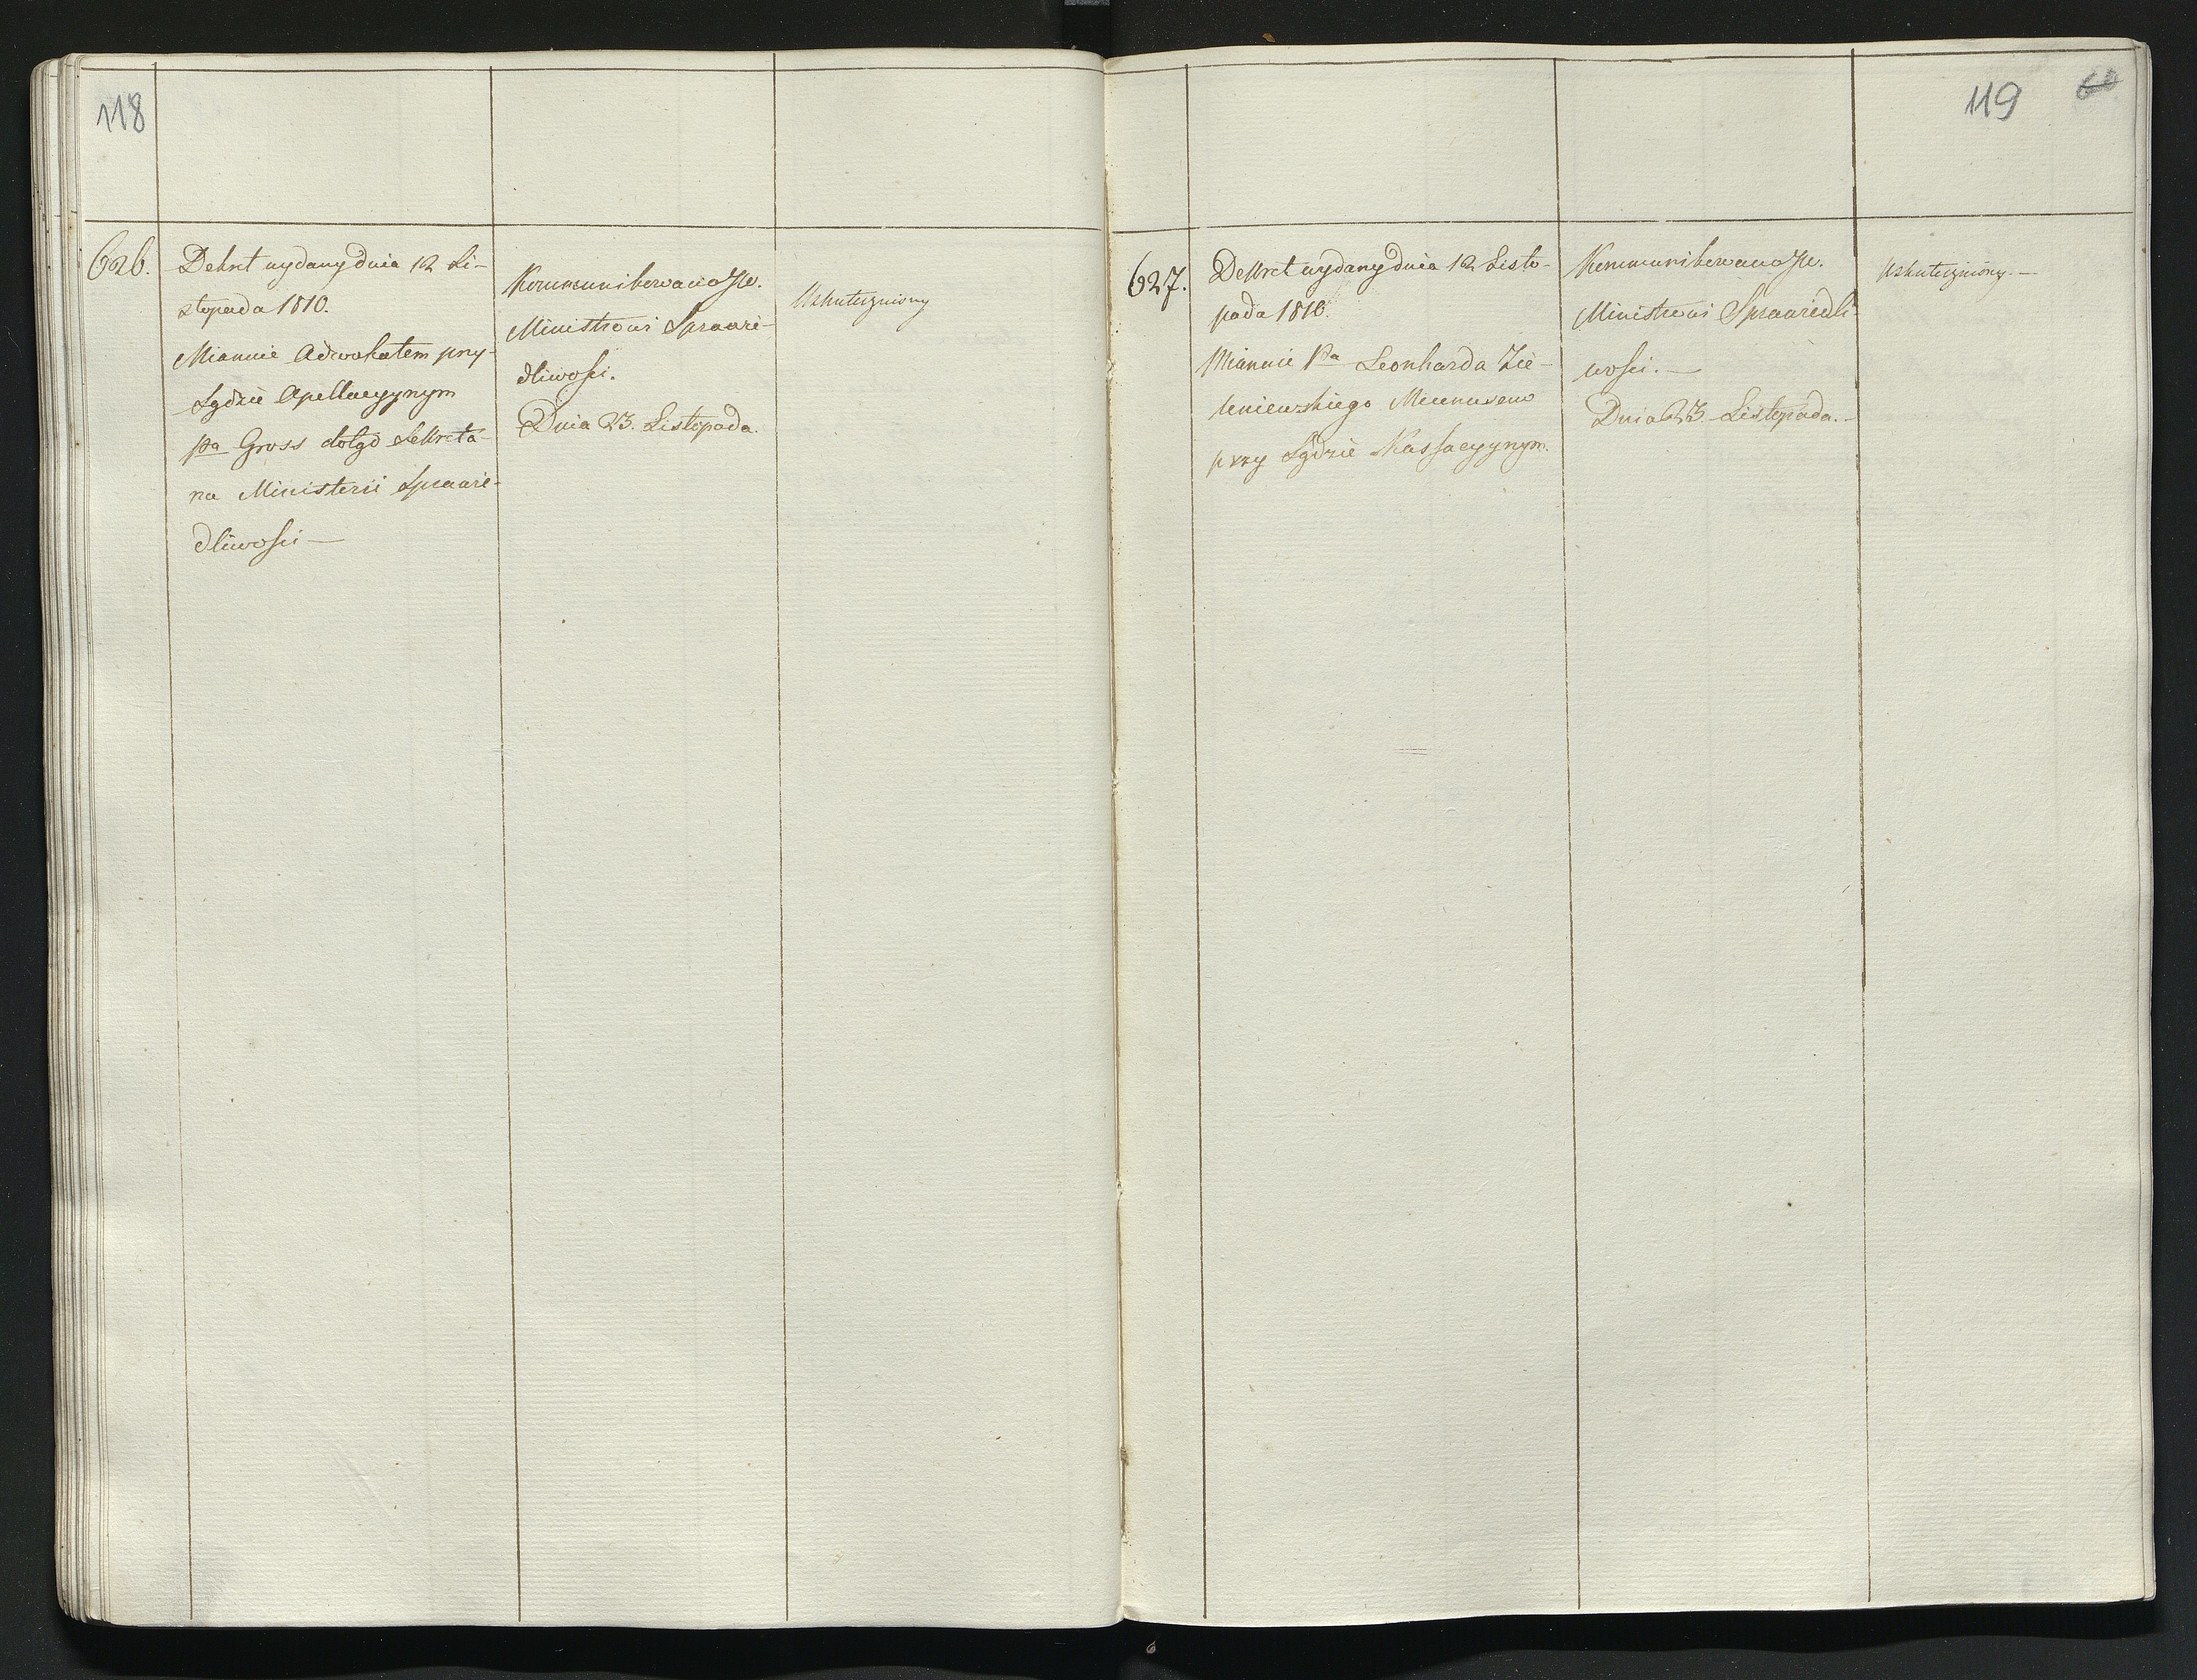 118
626.
Dekret wydany dnia 12 Li-
stopada 1810.
Mianuie Adwokatem przy
Sądzie Apellacyynym
Pa Gross dotąd Sekreta-
rza Ministerii Sprawie-
dliwości —
Kommunikowano JW.
Ministrowi Sprawie-
dliwości.
Dnia 23. Listopada.
Uskuteczniony
119
60
627.
Dekret wydany dnia 12 Listo-
pada 1810.
Mianuie Pa Leonharda Zie-
leniewskiego Mecenasem
przy Sądzie Kassacyynym.
Kommunikowano JW.
Ministrowi Sprawiedli-
wości. —
Dnia 23. Listopada. —
Uskuteczniony. —